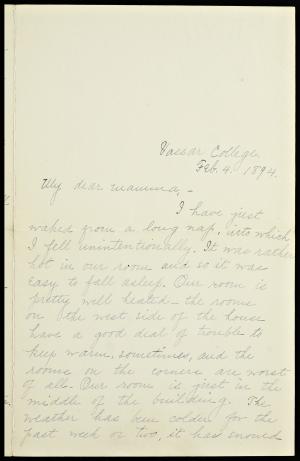 Vassar College.
Feb. 4. 1894.
My dear mamma, -
I have just
waked from a long nap, into which
I fell unintentionally. It was rather
hot in our room and so it was
easy to fall asleep. Our room is
pretty well heated - the rooms
on the west side of the house
have a good deal of trouble to
keep warm, sometimes, and the
rooms on the corners are worst
of all. Our room is just in the
middle of the building. The
weather has been colder for the
past week or two, it has snowed